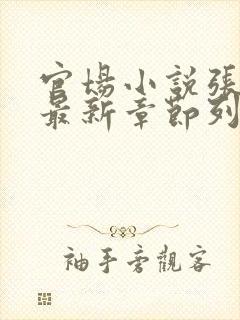 官場小説張
最新章節列
袖手旁觀客